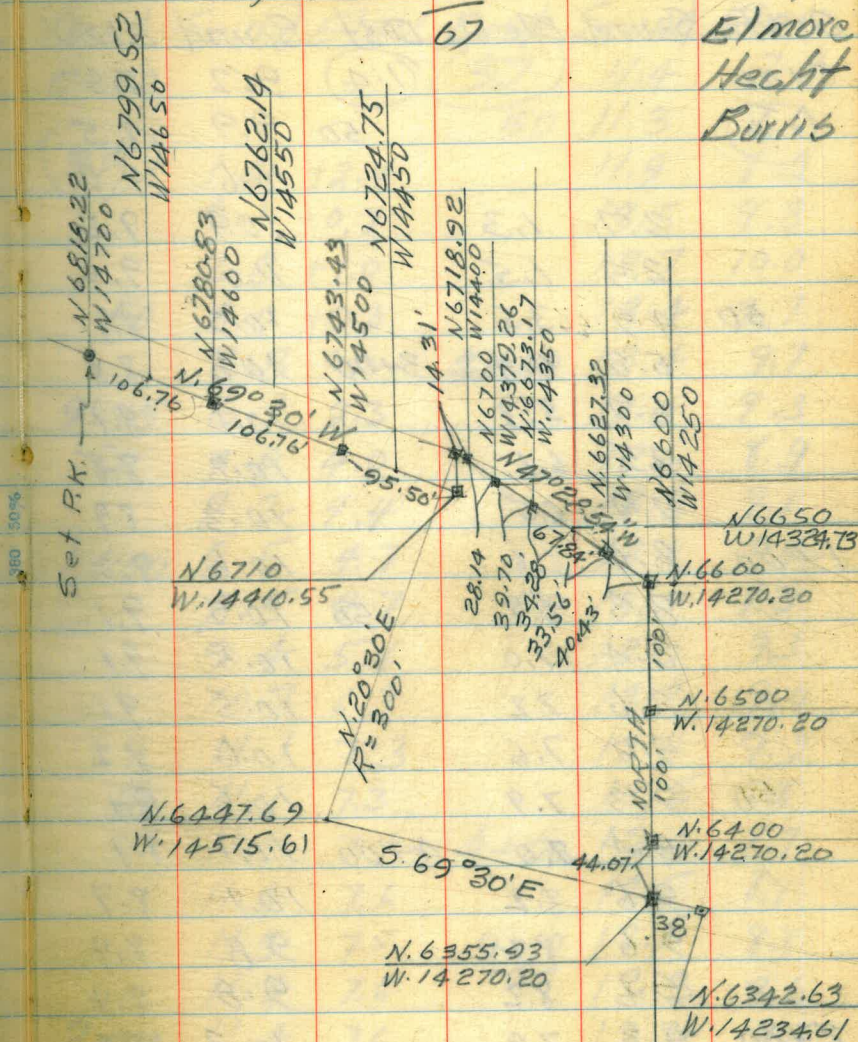 67
Elmore
Hecht
Burris
N 6818.22
W 14700
N6799.52
W14650
N6780.83
W14600
N6762.14
W14550
N6743.43
W14500
N6724.75
W14450
14.31'
N6718.92
W14400
N6700
W14379.26
N.6673.17
W.14350
N.6627.32
W.14300
N6600
W14250
Set P.K.
106.76
N. 69° 30' W
106.76'
95.50'
N47°28'54"W
N6650
W14324.73
N6710
W.14410.55
28.14
39.70'
34.28'
33.56'
67.84'
40.43'
N.6600
W.14270.20
100'
N.20°30'E
R=300'
N.6500
W.14270.20
NORTH
100'
N.6447.69
W.14515.61
S.69°30'E
44.07'
N.6400
W.14270.20
38'
N.6355.93
W.14270.20
N.6342.63
W.14234.61